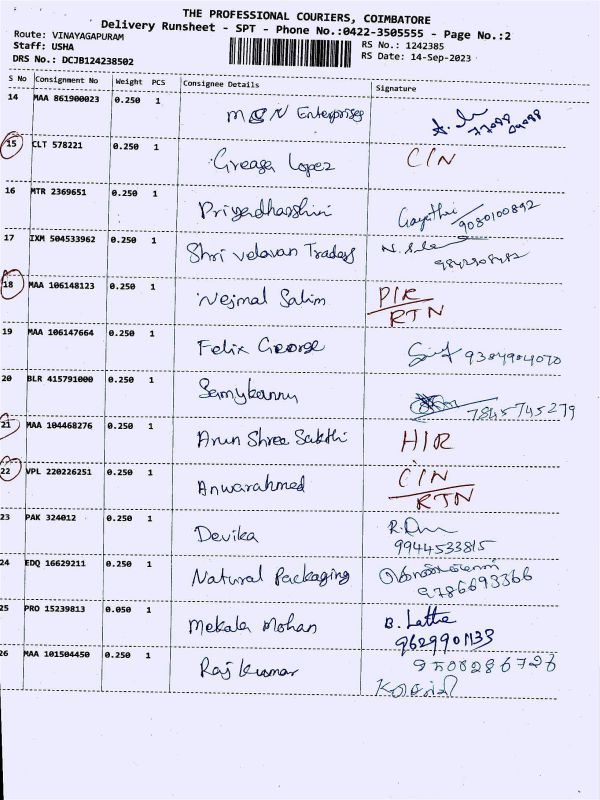 THE PROFESSIONAL COURIERS, COIMBATORE
Delivery Runsheet - SPT - Phone No.:0422-3505555 - Page No.:2
Route: VINAYAGAPURAM
Staff: USHA
RS No.: 1242385
DRS No.: DCJB124238502
RS Date: 14-Sep-2023
S No Consignment No Weight PCS Consignee Details Signature
14 MAA 861900023 0.250 1 M&N Enterprises
15 CLT 578221 0.250 1 Greasa Lopez CIN
16 MTR 2369651 0.250 1 Priyadharshini Gayathri 9080100892
17 IXM 504533962 0.250 1 Shri velavan Traders
18 MAA 106148123 0.250 1 Nejmal Salim PIR
RTN
19 MAA 106147664 0.250 1 Felix George 9384904070
20 BLR 415791000 0.250 1 Samykannu 7845745279
21 MAA 104468276 0.250 1 Arun Shree Sakthi HIR
22 VPL 220226251 0.250 1 Anwarahmed CIN
RTN
23 PAK 324012 0.250 1 Devika
9944533815
24 EDQ 16629211 0.250 1 Natural Packaging
9786693366
25 PRO 15239813 0.050 1 Mekala Mohan B. Latha
9629901133
26 MAA 101504450 0.250 1 Raj kumar 9500286726